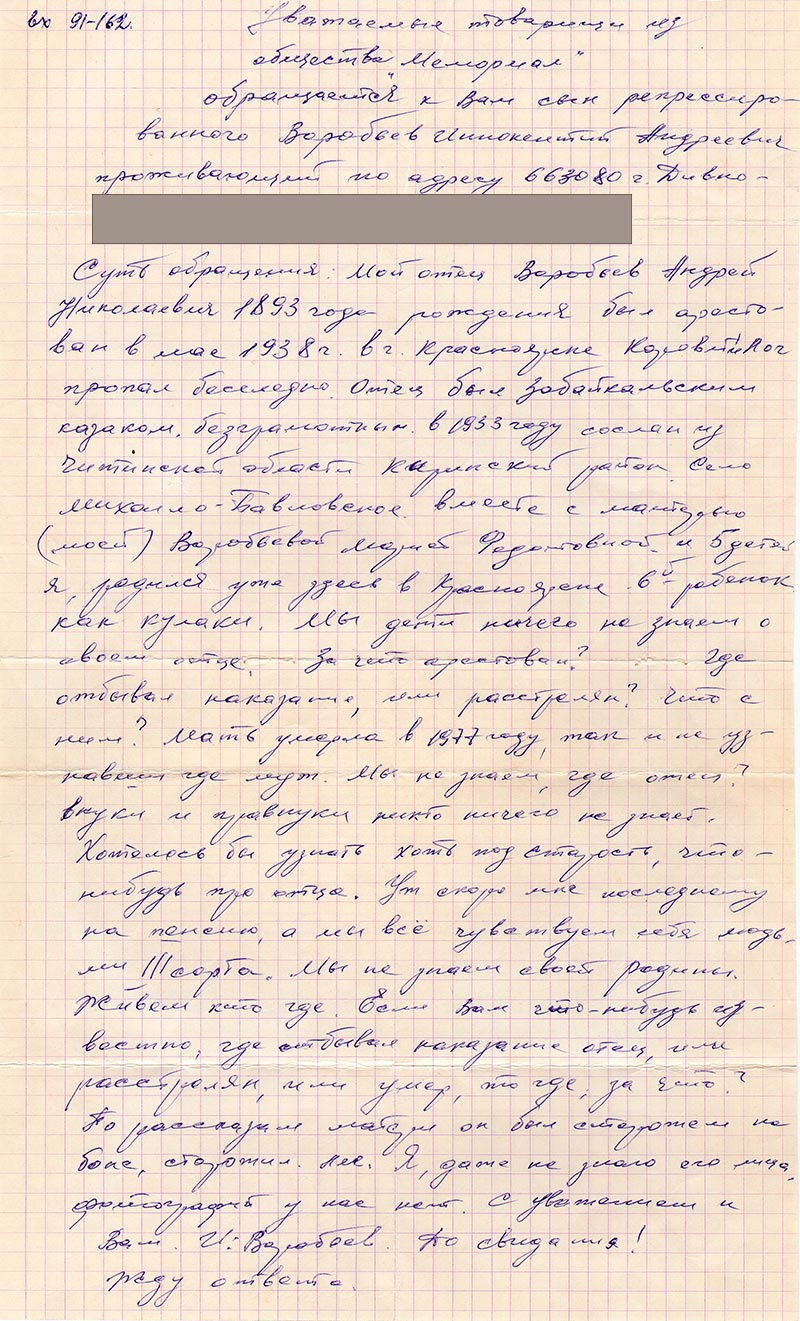 вх 91-162.
Уважаемые товарищи из
общества "Мемориал"
обращается к Вам сын репрессиро-
ванного Воробьев Иннокентий Андреевич
проживающий по адресу 663080 г. Дивно-
Суть обращения: Мой отец Воробьев Андрей
Николаевич 1893 года рождения был аресто-
ван в мае 1938 г. в г. Красноярске
пропал бесследно. Отец был Забайкальским
казаком, безграмотным. в 1933 году сослан из
Читинской области район Село
Михайло-Павловское. вместе с матерью
(моей) Воробьевой Марией Федотовной и 5 детей
я, родился уже здесь в Красноярске 6й ребенок
как кулаки. Мы дети ничего не знаем о
своем отце. За что арестован? Где
отбывал наказание, или расстрелян? Что с
ним? Мать умерла в 1977 году, так и не уз-
навши где муж. Мы не знаем, где отец?
внуки и правнуки никто ничего не знает.
Хотелось бы узнать хоть под старость, что-
нибудь про отца. Уж скоро мне последнему
на пенсию, а мы всё чувствуем себя людь-
ми III сорта. Мы не знаем своей Родины.
Живем кто где. Если Вам что-нибудь из-
вестно, где отбывал наказание отец, или
расстрелян, или умер, то где, за что?
По рассказам матери он был сторожем на
боне, сторожил лес. Я, даже не знаю его лица,
фотографий у нас нет. С уважением к
Вам. И. Воробьев. До свидания!
Жду ответа.